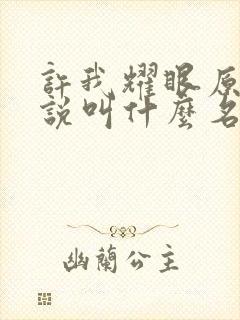 許我耀眼原
說叫什麼名
幽蘭公主